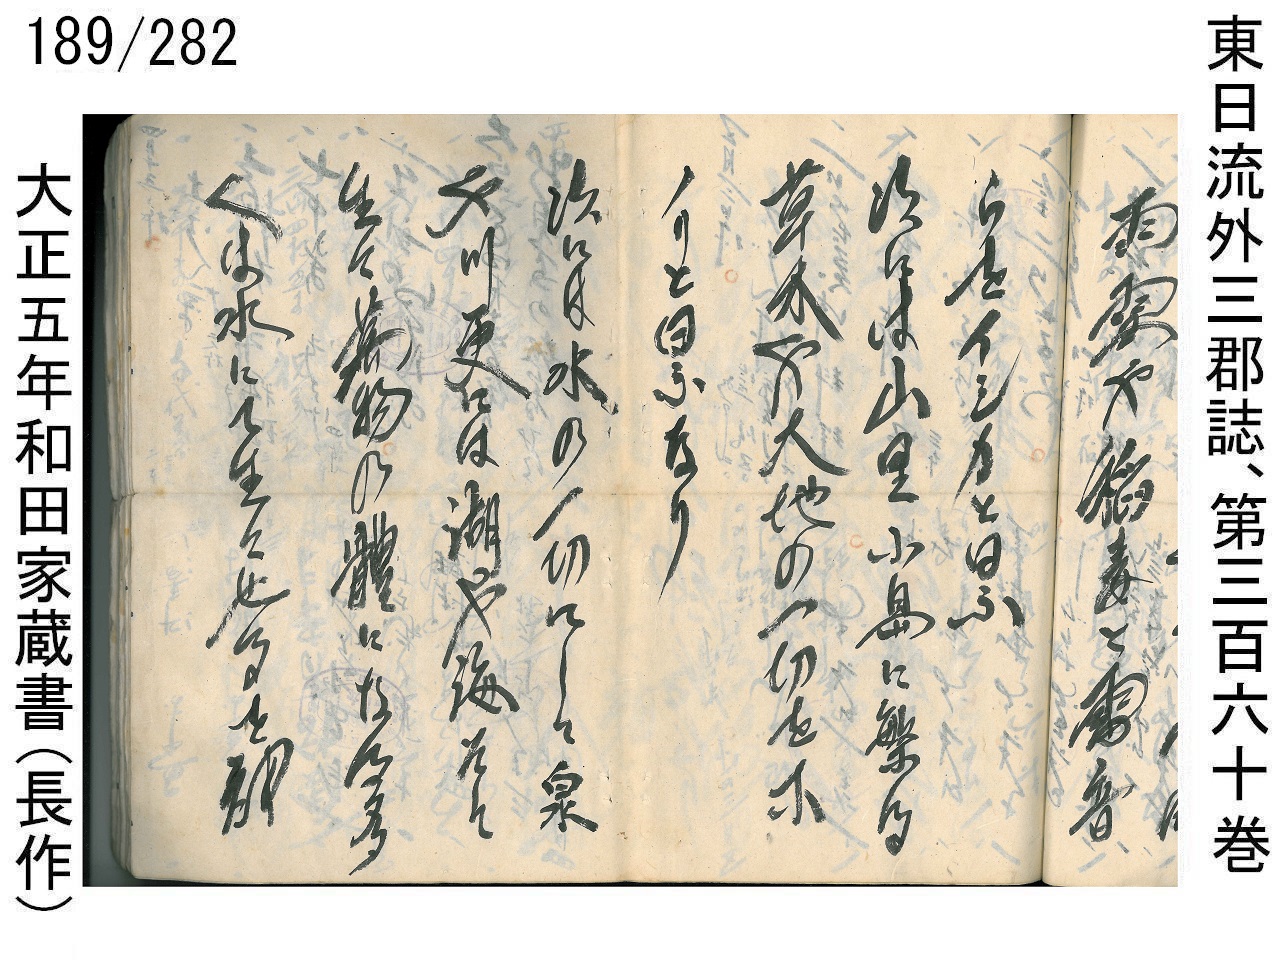 189/282
東日流外三郡誌、第三百六十巻
雨雲や稲妻と雷音
らをイシカと曰ふ
次には山里小島に繁る
草木や大地の一切をホ
ノリと曰ふなり
次には水の一切にして泉
や川更には湖や海そして
生に萬物の體になせる
は水にて生に
大正五年和田家蔵書（長作）